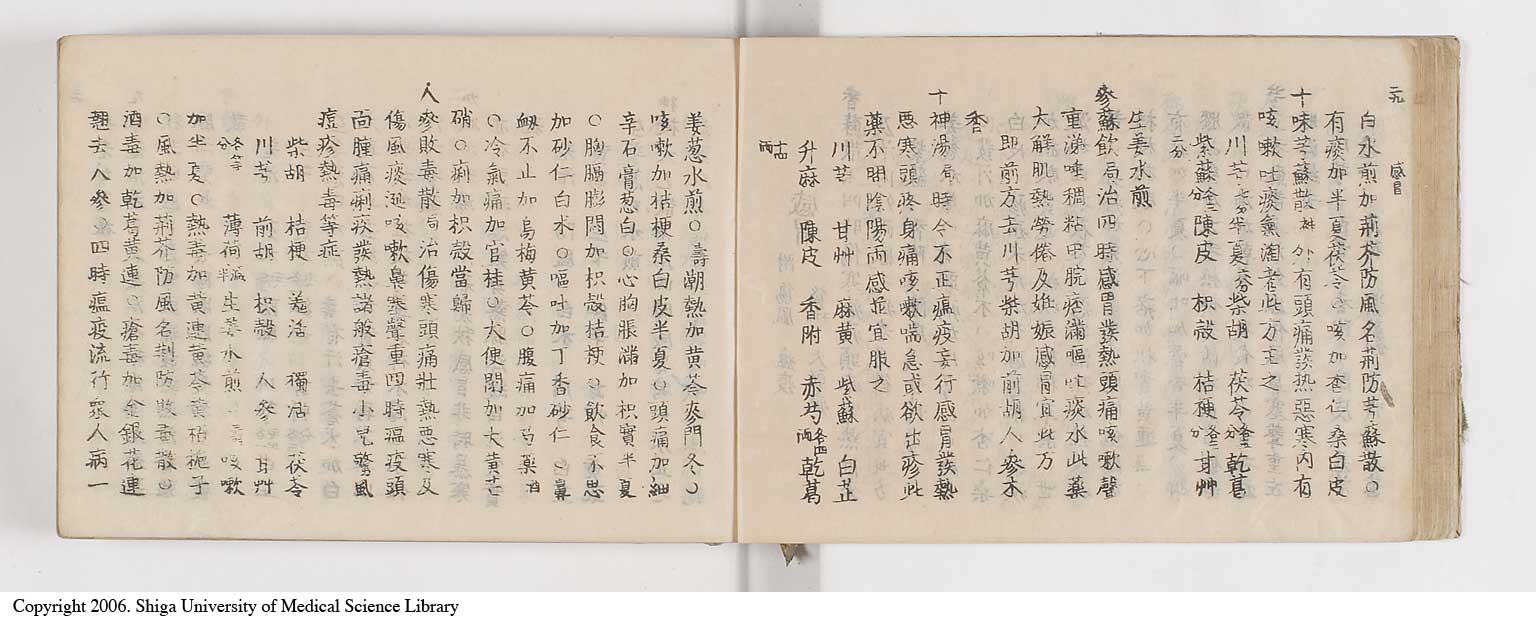 感冒
白水煎加荊芥防風名荊防芎蘇散○
有痰加半夏茯苓○咳加杏仁桑白皮
十味芎蘇散 外有頭痛發热惡寒內有
咳嗽吐痰氣涌者此方主之
川芎 半夏 柴胡 茯苓 乾葛
紫蘇 陳皮 枳殼 桔梗 甘艸
生姜水煎
參蘇飲局治四時感冒發熱頭痛咳嗽聲
重涕唾稠粘中脘痞滿嘔吐痰水此藥
大解肌熱勞倦及妊娠感冒宜此方
即前方去川芎柴胡加前胡人參木
香
十神湯局時令不正瘟疫妄行感冒發熱
惡寒頭疼身痛咳嗽喘急或欲出疹此
藥不問陰陽兩感並宜服之
川芎 甘艸 麻黃 紫蘇 白芷
升麻 陳皮 香附 赤芍各四兩 乾葛
十四兩
姜葱水煎○壽潮熱加黃芩麥門冬○
咳嗽加桔梗桑白皮半夏○頭痛加細
辛石膏葱白○心胸脹滿加枳實半夏
○胸膈膨悶加枳殼桔梗○飲食不思
加砂仁白朮○嘔吐加丁香砂仁○鼻
衂不止加烏梅黃芩○腹痛加芍藥
○冷氣痛加官桂○大便閉加大黃芒
硝○痢加枳殼當歸
人參敗毒散局治傷寒頭痛壯熱惡寒及
傷風痰涎咳嗽鼻塞聲重四時瘟疫頭
面腫痛痢疾發熱諸般瘡毒小兒驚風
痘疹熱毒等症
柴胡 桔梗 羌活 獨活 茯苓
川芎 前胡 枳殼 人參 甘艸
各等分 薄荷減半 生姜水煎○壽咳嗽
加半夏○熱毒加黃連黃芩黃栢梔子
○風熱加荊芥防風名荊防敗毒散○
酒毒加乾葛黃連○瘡毒加金銀花連
翹去人參○四時瘟疫流行眾人病一